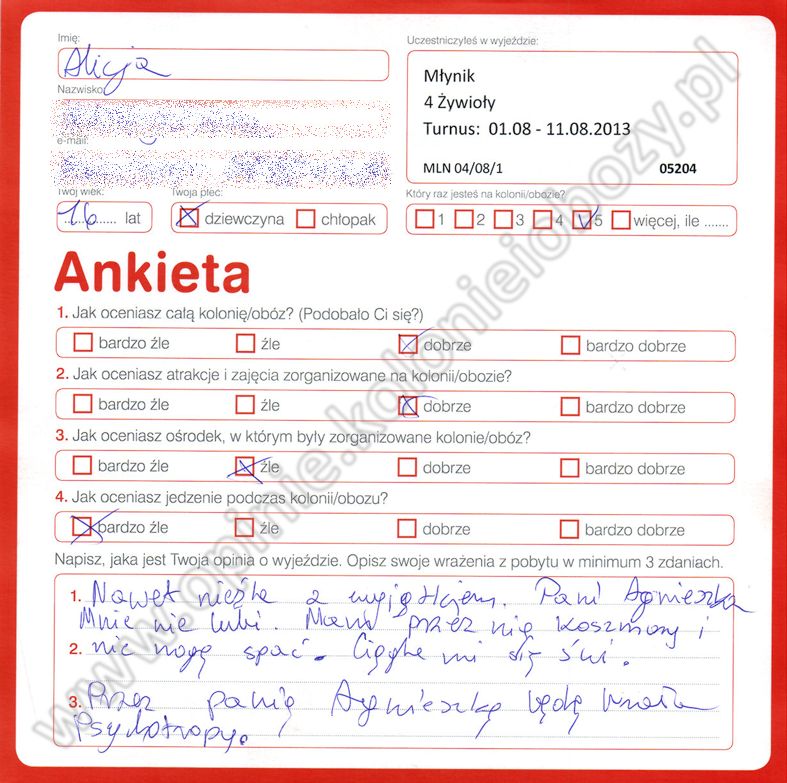 Imię:
Alicja
Uczestniczyłeś w wyjeździe:
Młynik
4 Żywioły
Turnus: 01.08 - 11.08.2013
MLN 04/08/1 05204
Nazwisko:
e-mail:
Twój wiek:
16 lat
Twoja płeć:
dziewczyna chłopak
Który raz jesteś na kolonii/obozie?
1 2 3 4 5 więcej, ile .......
Ankieta
1. Jak oceniasz całą kolonię/obóz? (Podobało Ci się?)
bardzo źle źle dobrze bardzo dobrze
2. Jak oceniasz atrakcje i zajęcia zorganizowane na kolonii/obozie?
bardzo źle źle dobrze bardzo dobrze
3. Jak oceniasz ośrodek, w którym były zorganizowane kolonie/obóz?
bardzo źle źle dobrze bardzo dobrze
4. Jak oceniasz jedzenie podczas kolonii/obozu?
bardzo źle źle dobrze bardzo dobrze
Napisz, jaka jest Twoja opinia o wyjeździe. Opisz swoje wrażenia z pobytu w minimum 3 zdaniach.
1. Nawet nieźle z wyjątkiem. Pani Agnieszka
Mnie nie lubi. Mam przez nią koszmary i
2. nie mogę spać. Ciągle mi się śni.
3. Przez panią Agnieszkę będę brała
Psychotropy.
www.opinie.kolonieiobozy.pl